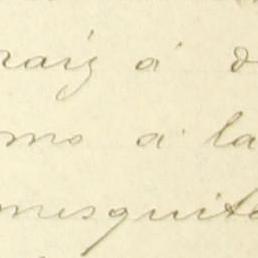 raiz á d
mo á la
mesquite